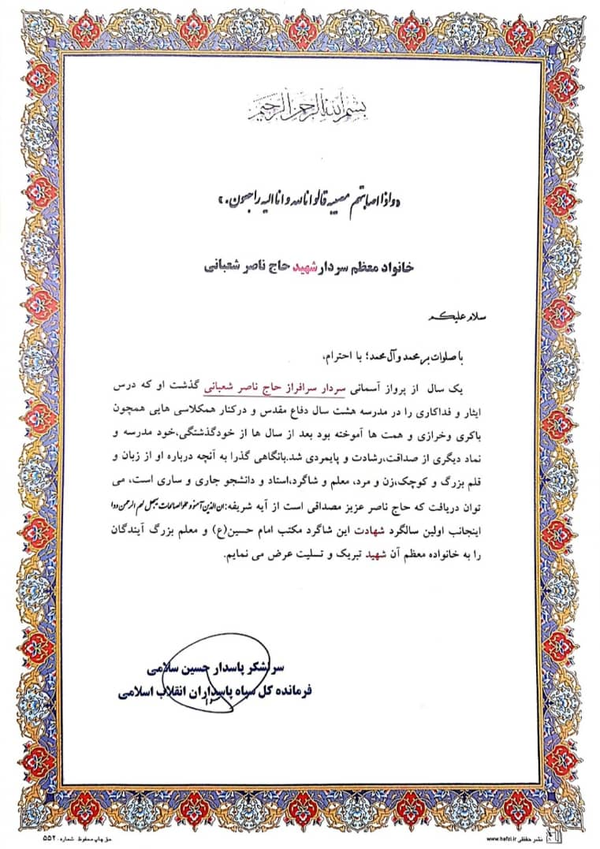 بسم الله الرحمن الرحیم
«واذا اصابتهم مصیبه قالوا انا لله و انا الیه راجعون.»
خانواد معظم سردار شهید حاج ناصر شعبانی
سلام علیکم
با صلوات بر محمد و آل محمد؛ با احترام،
یک سال از پرواز آسمانی سردار سرافراز حاج ناصر شعبانی گذشت او که درس
ایثار و فداکاری را در مدرسه هشت سال دفاع مقدس و درکنار همکلاسی هایی همچون
باکری وخرازی و همت ها آموخته بود بعد از سال ها از خودگذشتگی،خود مدرسه و
نماد دیگری از صداقت،رشادت و پایمردی شد.بانگاهی گذرا به آنچه درباره او از زبان و
قلم بزرگ و کوچک،زن و مرد، معلم و شاگرد،استاد و دانشجو جاری و ساری است، می
توان دریافت که حاج ناصر عزیز مصداقی است از آیه شریفه:ان الذین آمنو و عملوا الصالحات سیجعل لهم الرحمن ودا
اینجانب اولین سالگرد شهادت این شاگرد مکتب امام حسین(ع) و معلم بزرگ آیندگان
را به خانواده معظم آن شهید تبریک و تسلیت عرض می نمایم.
سرلشکر پاسدار حسین سلامی
فرمانده کل سپاه پاسداران انقلاب اسلامی
نشر حفظی www.hafzi.ir
حق چاپ محفوظ - شماره ۵۵۲۰